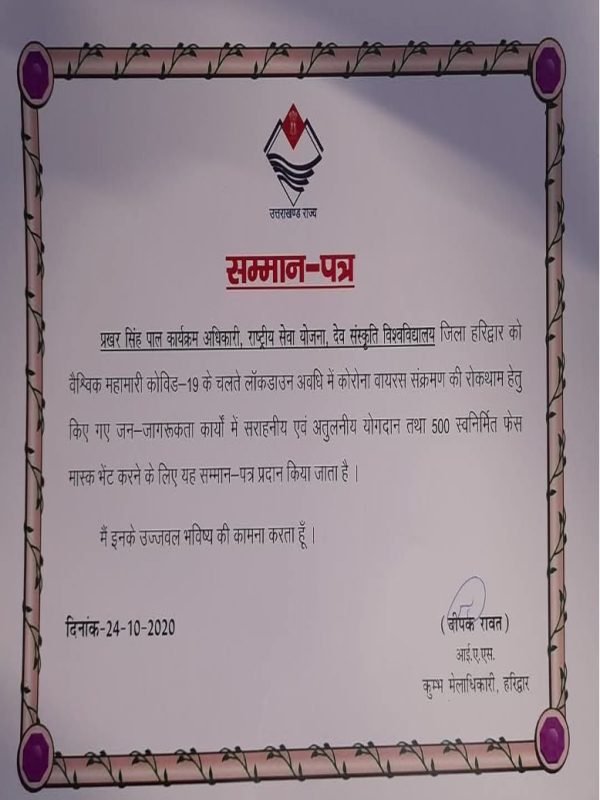 उत्तराखण्ड राज्य
सम्मान-पत्र
प्रखर सिंह पाल कार्यक्रम अधिकारी, राष्ट्रीय सेवा योजना, देव संस्कृति विश्वविद्यालय जिला हरिद्वार को
वैश्विक महामारी कोविड-19 के चलते लॉकडाउन अवधि में कोरोना वायरस संक्रमण की रोकथाम हेतु
किए गए जन-जागरूकता कार्यो में सराहनीय एवं अतुलनीय योगदान तथा 500 स्वनिर्मित फेस
मास्क भेंट करने के लिए यह सम्मान-पत्र प्रदान किया जाता है ।
मैं इनके उज्जवल भविष्य की कामना करता हूँ ।
दिनांक-24-10-2020
(दीपक रावत)
आई.ए.एस.
कुम्भ मेलाधिकारी, हरिद्वार